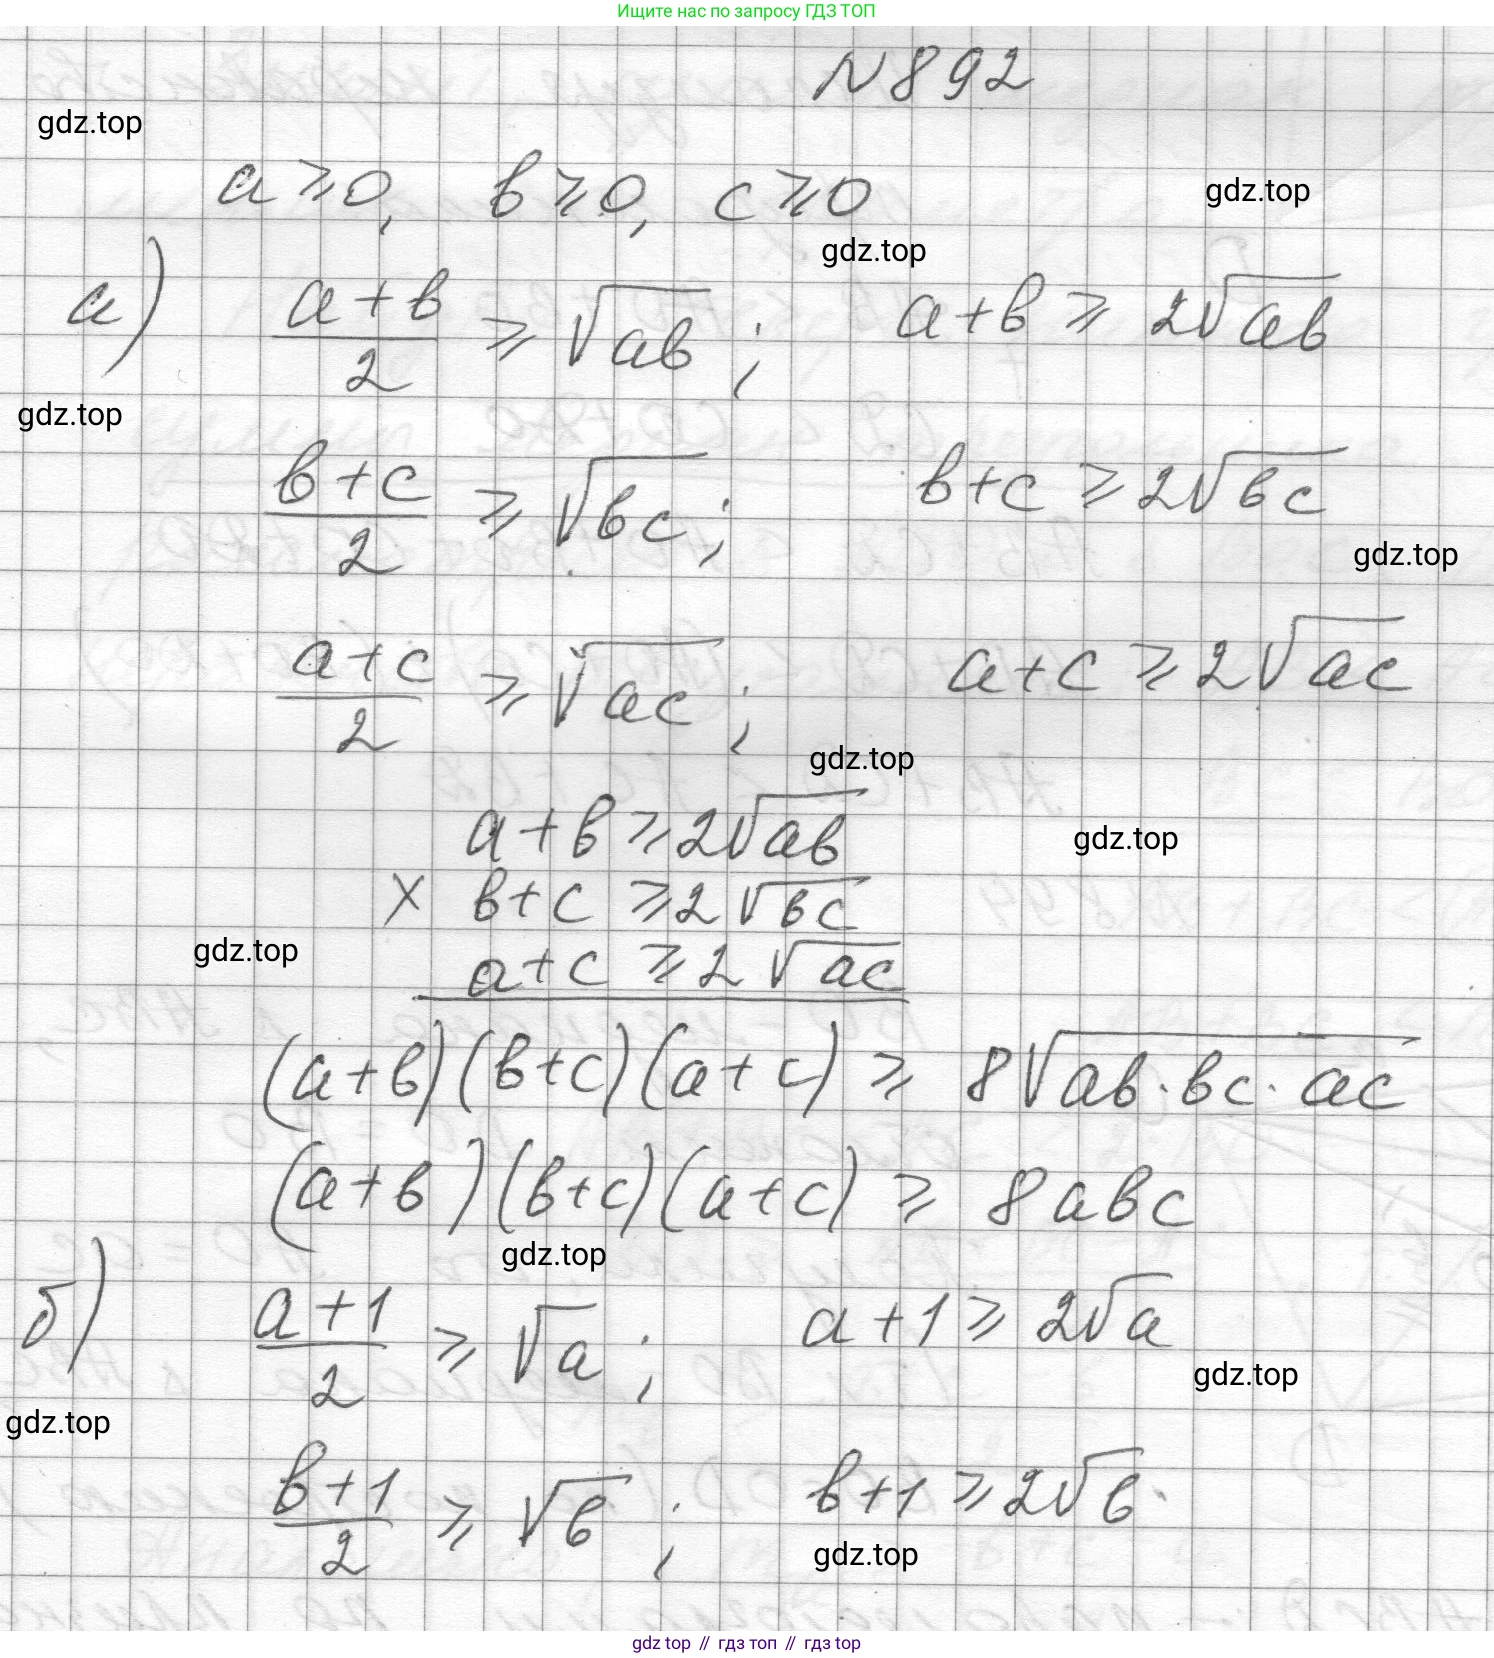 Ищите нас по запросу ГДЗ ТОП
№892
gdz.top
a ⩾ 0, в ⩾ 0, c ⩾ 0
gdz.top
gdz.top
а) (a+в)/2 ⩾ √(aв) ; a+в ⩾ 2√(aв)
gdz.top
(в+c)/2 ⩾ √(вc) ; в+c ⩾ 2√(вc)
gdz.top
(a+c)/2 ⩾ √(ac) ; a+c ⩾ 2√(ac)
gdz.top
a+в ⩾ 2√(aв)
gdz.top
× в+c ⩾ 2√(вc)
gdz.top
a+c ⩾ 2√(ac)
(a+в)(в+c)(a+c) ⩾ 8√(aв·вc·ac)
(a+в)(в+c)(a+c) ⩾ 8aвc
gdz.top
б) (a+1)/2 ⩾ √a ; a+1 ⩾ 2√a
gdz.top
gdz.top
(в+1)/2 ⩾ √в ; в+1 ⩾ 2√в
gdz.top
gdz top // гдз топ // гдз top